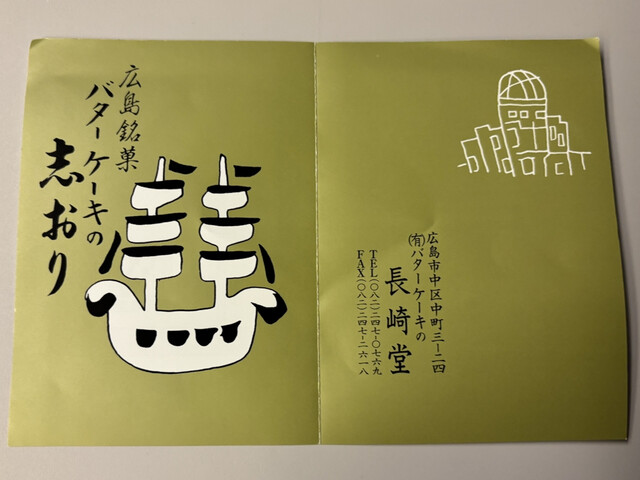 広島銘菓
バターケーキの
志おり
広島市中区中町三-二四
(有)バターケーキの
長崎堂
TEL(〇八二)二四七-〇七六九
FAX(〇八二)二四七-二六一八